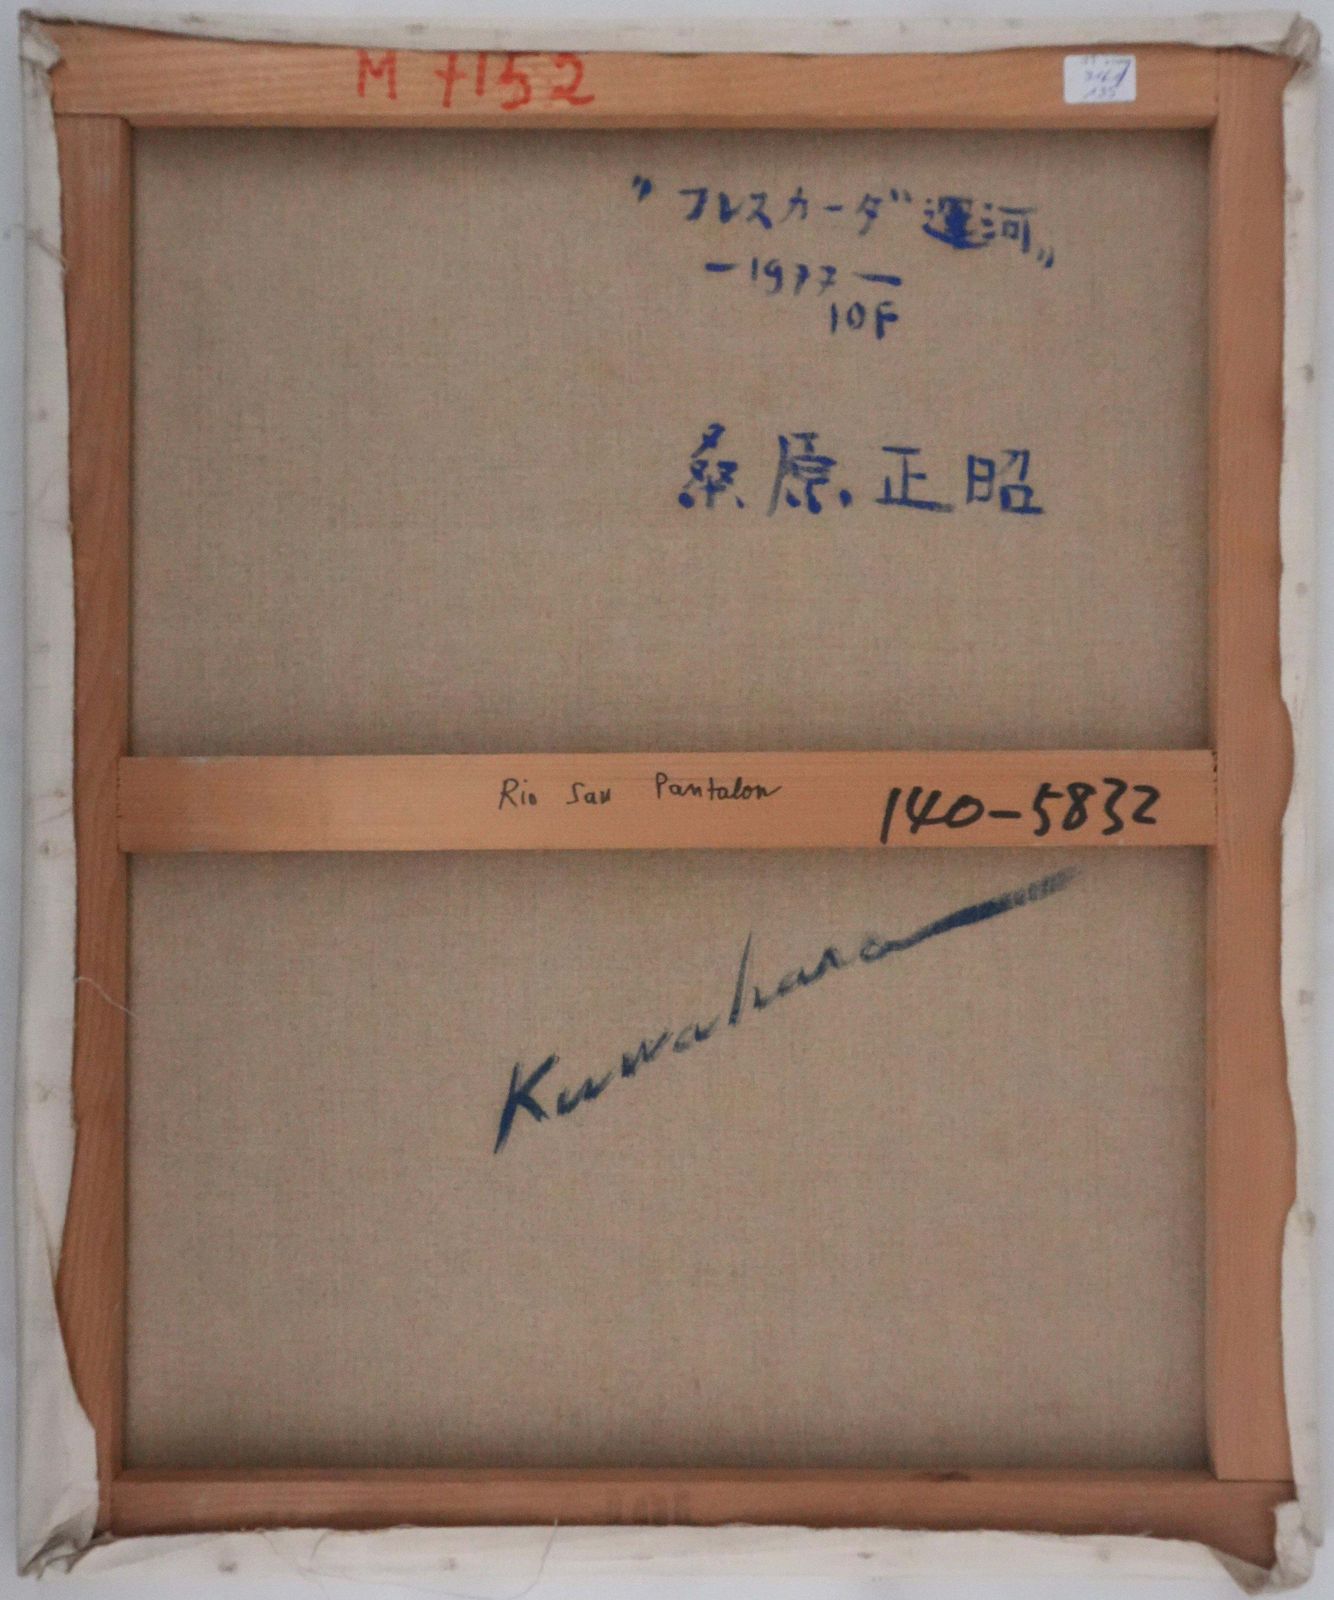 M 7152
"フレスカーダ"運河"
－1977－
10F
桑原正昭
Rio San Pantalon
140-5832
Kuwahara